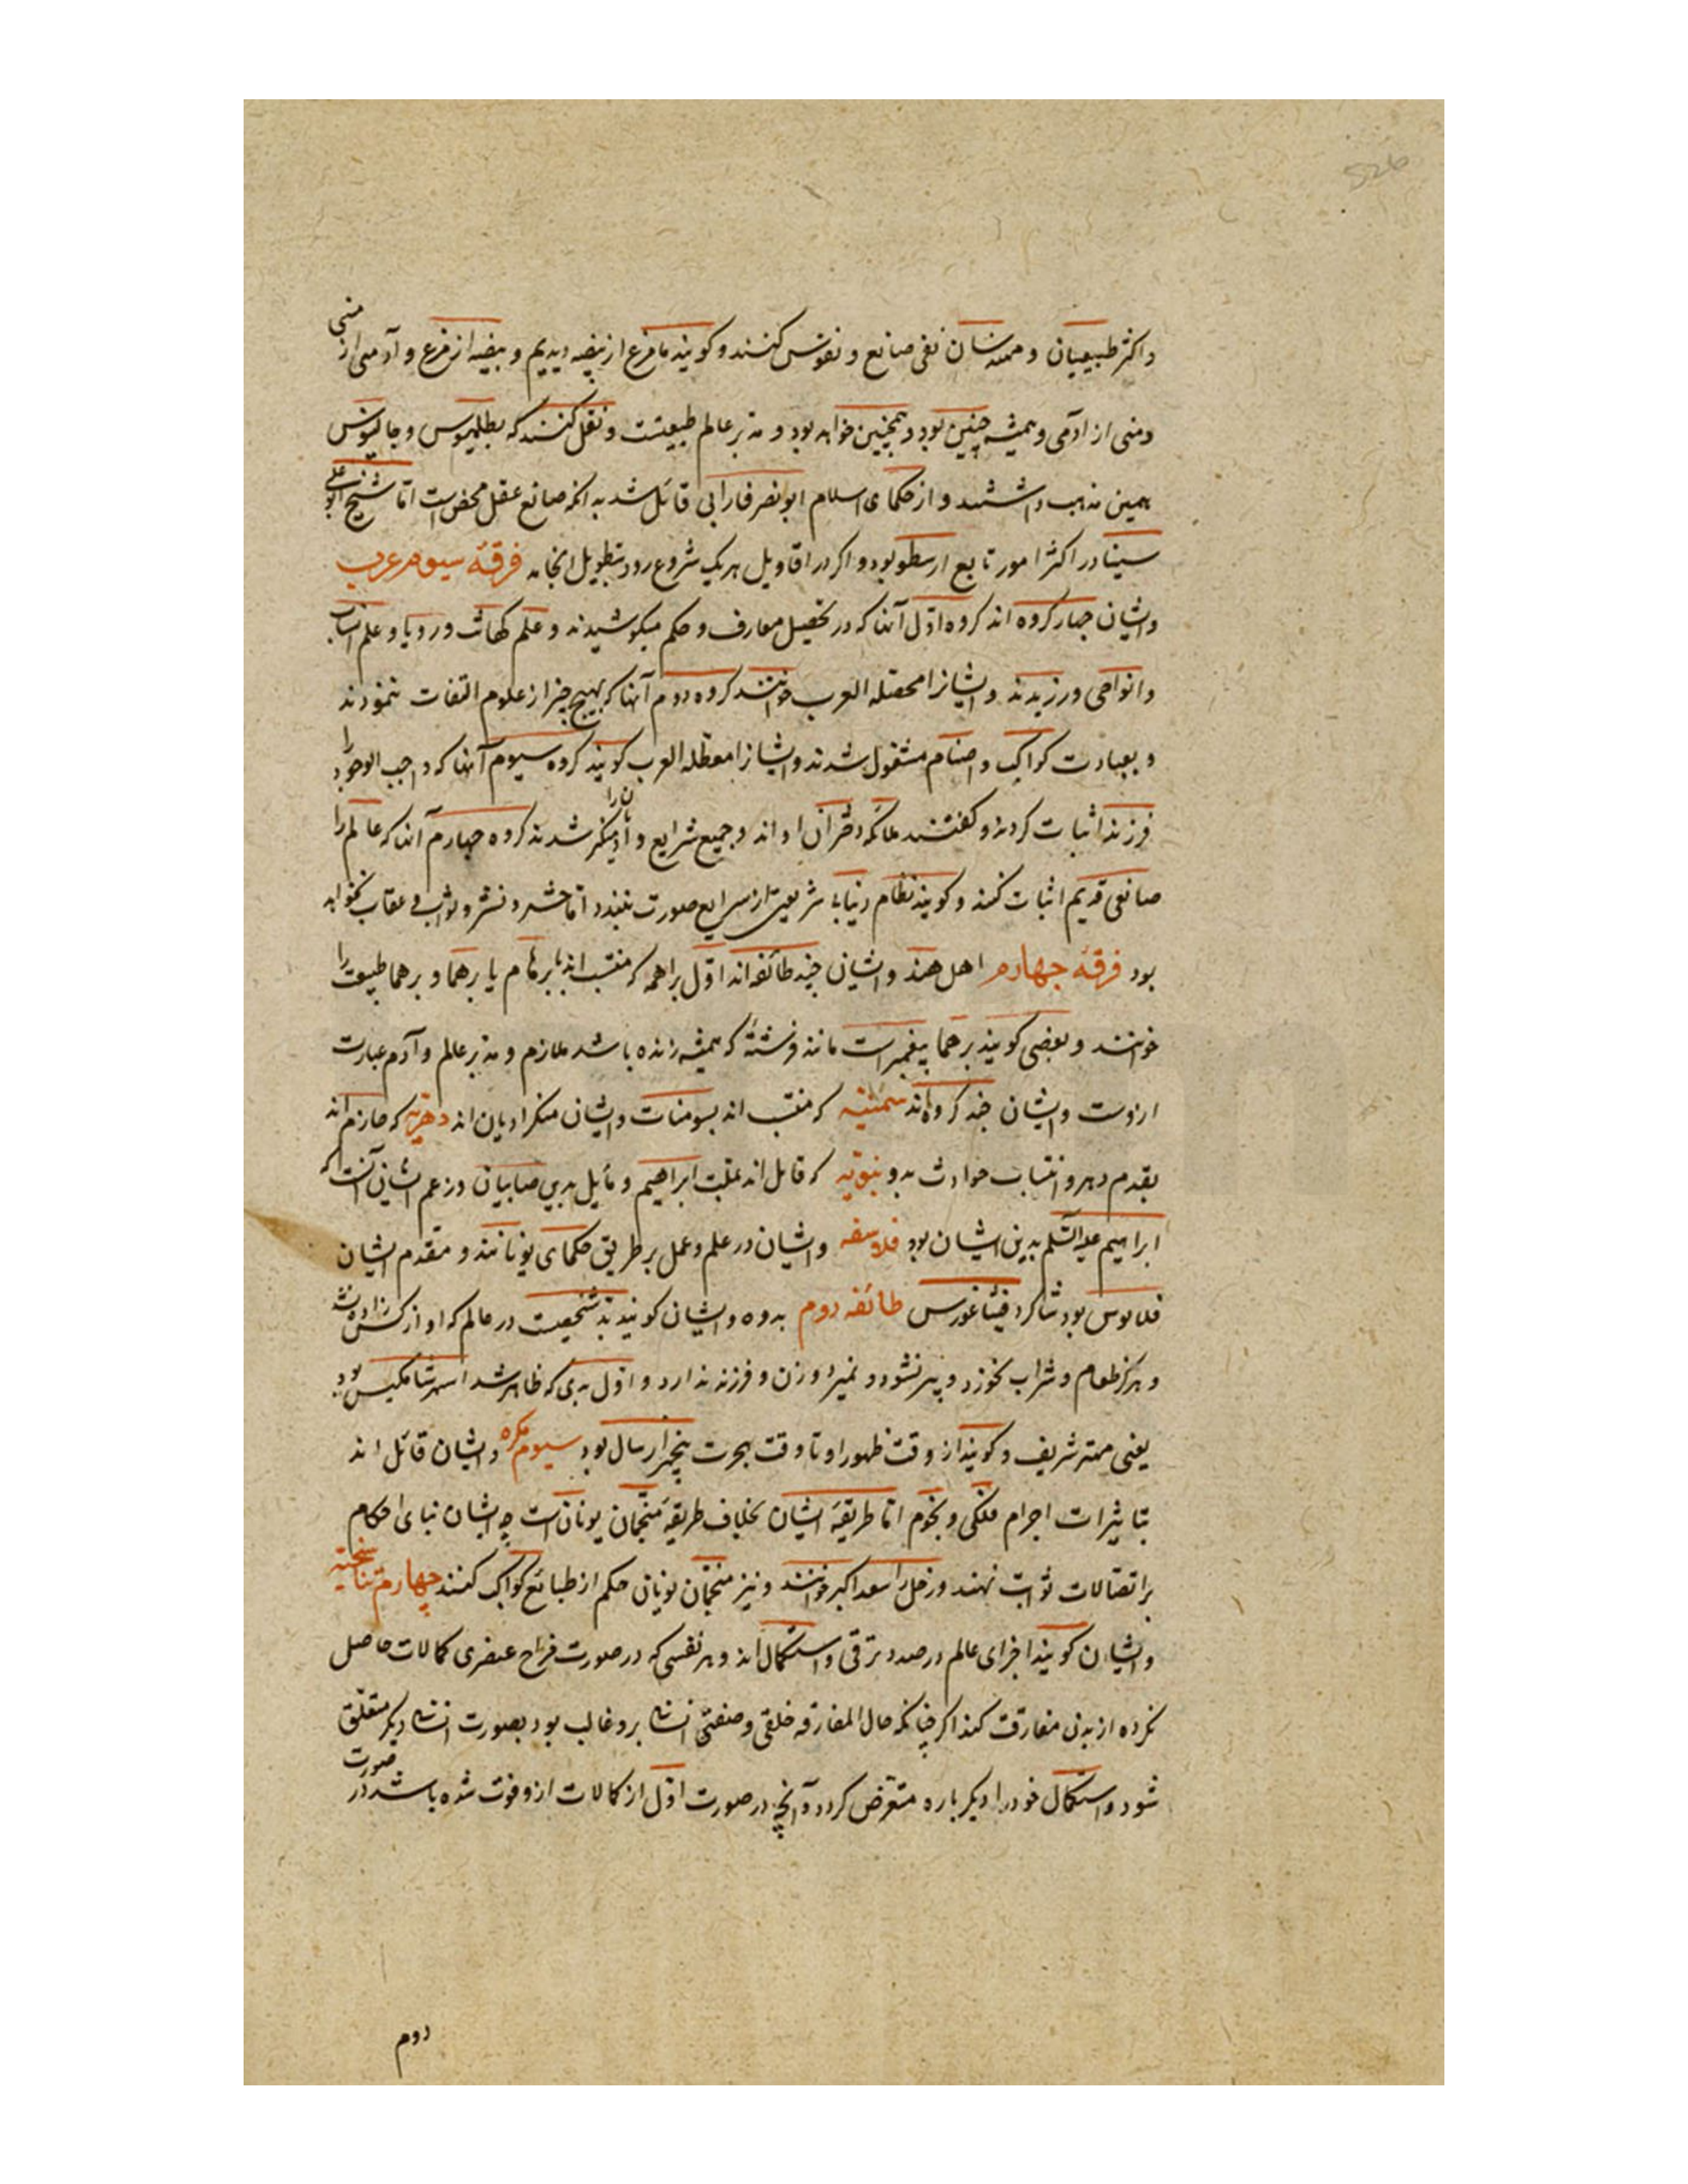 واکثر طبیعیان و ممتنشان نفی صانع و نفوس کنند و کویند ما مرغ از بیضه دیدیم و بیضه از مرغ و آدمی از منی
ومنی از آدمی و همیشه چنین بود و همچنین خواهد بود و مدبر عالم طبیعتست و نقل کنند که بطلمیوس و جالینوس
همین مذهب داشتند و از حکمای اسلام ابو نصر فارابی قائل شد به انکه صانع عقل محض است اما شیخ ابو علی
سینا در اکثر امور تابع ارسطو بود و اکر در اقاویل هر یک شروع رود بتطویل انجامد فرقهٔ سیوم عرب
وایشان چهار کروه اند کروه اول آنها که در تحصیل معارف و حکم میکوشیدند و علم کهانت و رویا و علم انساب
وانواحی ورزیدند وایشانرا محصله العرب خوانند کروه دوم آنها که بهیچ چیز از علوم التفات ننمودند
و بعبادت کواکب واصنام مشغول شدند وایشانرا معطله العرب کویند کروه سیوم آنها که واجب الوجود را
فرزند اثبات کردند و کفتند ملائکه دختران او اند و جمیع شرایع و ادیان را منکر شدند کروه چهارم آنها که عالم را
صانعی قدیم اثبات کنند و کویند نظام دنیا بی شریعتی از شرایع صورت نبندد اما حشر و نشر و ثواب و عقاب نخواهد
بود فرقهٔ چهارم اهل هند وایشان چند طائفه اند اول براهمه که منتسب اند ببرهام یا برهما و برهما طبیعت را
خوانند و بعضی کویند برهما پیغمبر است مانند فرشتهٔ که همیشه زنده باشد ملازم و مدبر عالم و آدم عبارت
ازوست وایشان چند کروه اند سمنیه که منتسب اند بسومنات وایشان منکر ادیان اند دهریه که جازم اند
بقدم دهر و انتساب حوادث بدو نبویه که قائل اند بملت ابراهیم و مایل بدین صابیان و زعم ایشان آنست که
ابراهیم علیه السلم بدین ایشان بود فلاسفه وایشان در علم و عمل بر طریق حکمای یونانند و مقدم ایشان
فلانوس بود شاکرد فیثاغورس طائفه دوم بدوه وایشان کویند بد شخصیت در عالم که او از کس زاده نشد
و هرکز طعام و شراب نخورد و پیر نشود و نمیرد و زن و فرزند ندارد و اول بدی که ظاهر شد اسمش شاکمین بود
یعنی مهتر شریف و کویند از وقت ظهور او تا وقت هجرت پنجهزار سال بود سیوم فکره وایشان قائل اند
بتاثیرات اجرام فلکی و نجوم اما طریقهٔ ایشان بخلاف طریقهٔ منجمان یونان است چه ایشان بنای احکام
بر اتصالات ثوابت نهند و زحل را سعد اکبر خوانند و نیز منجمان یونان حکم از طبائع کواکب کنند چهارم تناسخیه
وایشان کویند اجزای عالم در صدد ترقی و استکمال اند و هر نفسی که در صورت مزاج عنصری کمالات حاصل
نکرده از بدن مفارقت کند اکر چنانکه حال المفارقه خلقی و صفتی انسانی برو غالب بود بصورت انسانی دیکر متعلق
شود و استکمال خود را دیکر باره متعرض کردد و آنچه در صورت اول از کمالات ازو فوت شده باشد در صورت
دوم